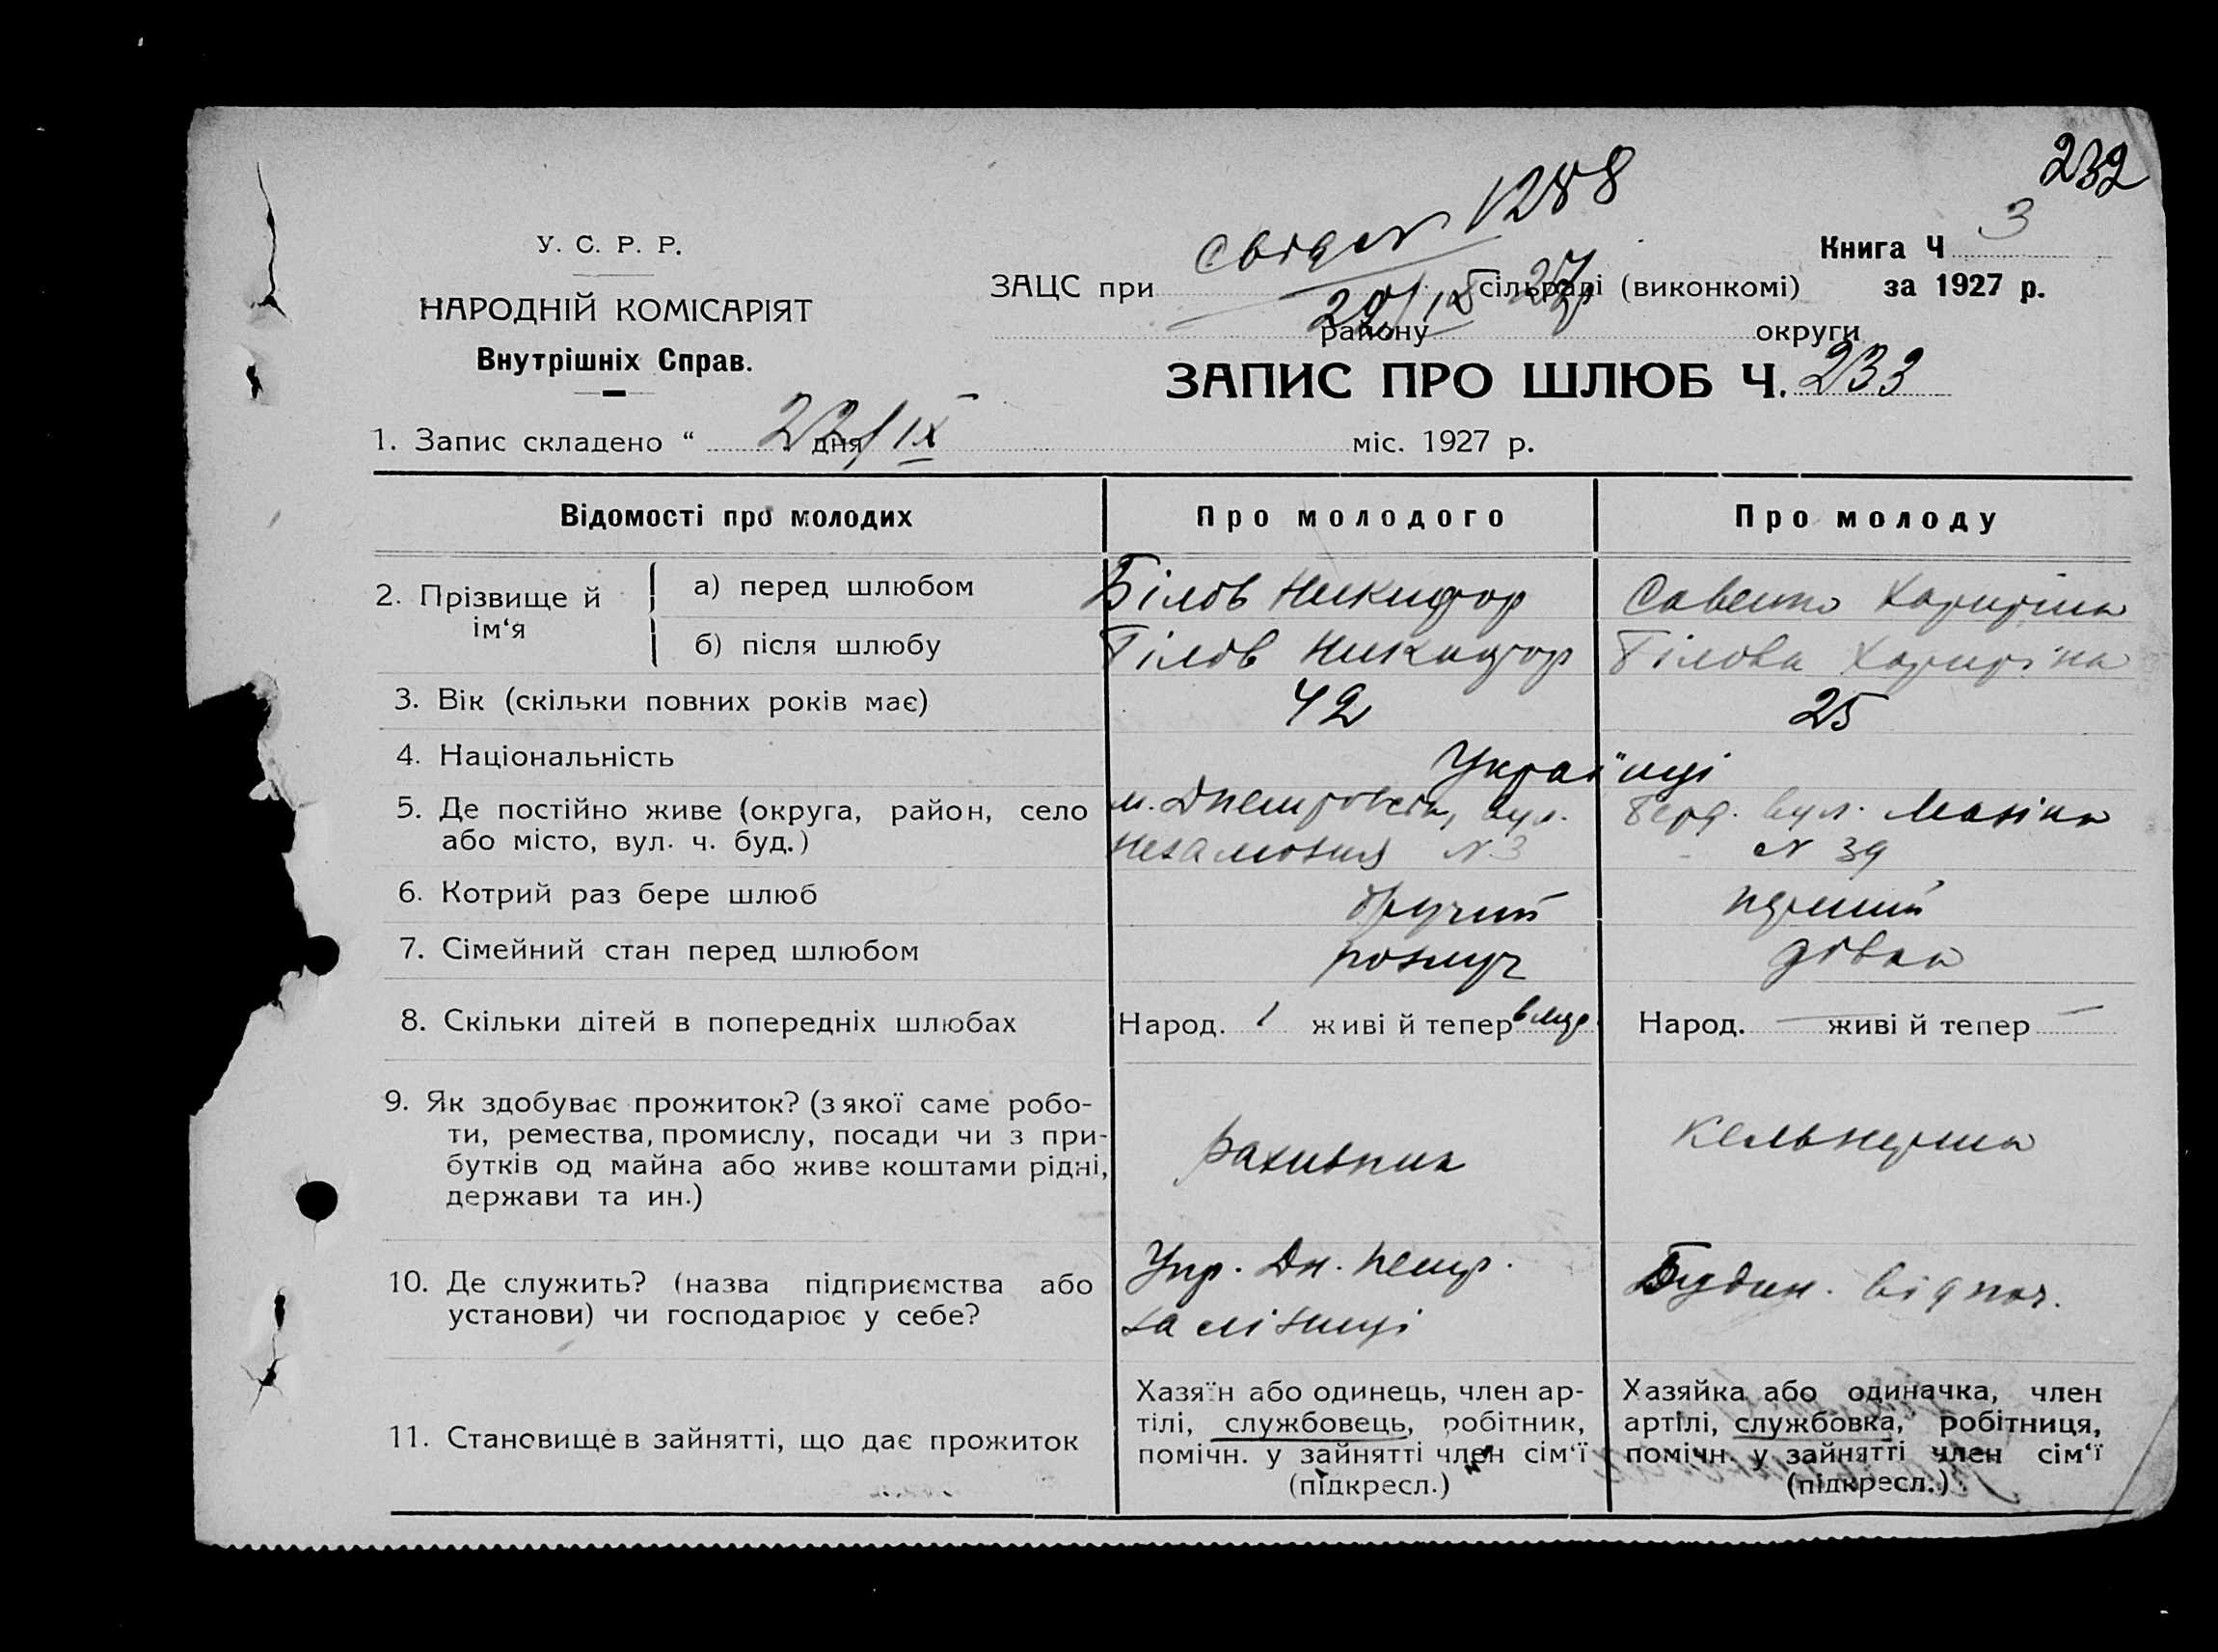 232
Свідоч 1288
У. С. Р. Р.
Книга Ч 3
ЗАЦС при сільраді (виконкомі) за 1927 р.
НАРОДНІЙ КОМІСАРІЯТ
29/IX 27
району округи
Внутрішніх Справ.
ЗАПИС ПРО ШЛЮБ Ч. 233
1. Запис складено “ 22/IX дня міс. 1927 р.
Відомості про молодих Про молодого Про молоду
2. Прізвище й ім‘я
а) перед шлюбом Білов Никифор Харитина
б) після шлюбу Білов Никифор Білова Харитіна
3. Вік (скільки повних років має) 42 25
4. Національність Українці
5. Де постійно живе (округа, район, село
або місто, вул. ч. буд.)
м. Днепровськ, вул.
N 3
Берд. вул.
N 39
6. Котрий раз бере шлюб другий перший
7. Сімейний стан перед шлюбом розлуч дівка
8. Скільки дітей в попередніх шлюбах Народ. 1 живі й тепер вмер. Народ. — живі й тепер —
9. Як здобуває прожиток? (з якої саме робо-
ти, ремества, промислу, посади чи з при-
бутків од майна або живе коштами рідні,
держави та ин.)
рахівник
кельнерша
10. Де служить? (назва підприємства або
установи) чи господарює у себе?
Упр. Дн. петр.
залізниці
Будин. відпоч.
11. Становище в зайнятті, що дає прожиток
Хазяїн або одинець, член ар-
тілі, службовець, робітник,
помічн. у зайнятті член сім‘ї
(підкресл.)
Хазяйка або одиначка, член
артілі, службовка, робітниця,
помічн. у зайнятті член сім‘ї
(підкресл.)